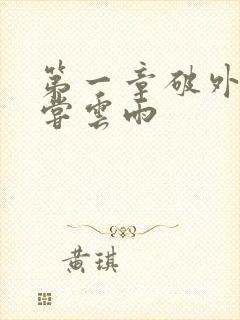 第一章破外
嘗雲雨
黄琪